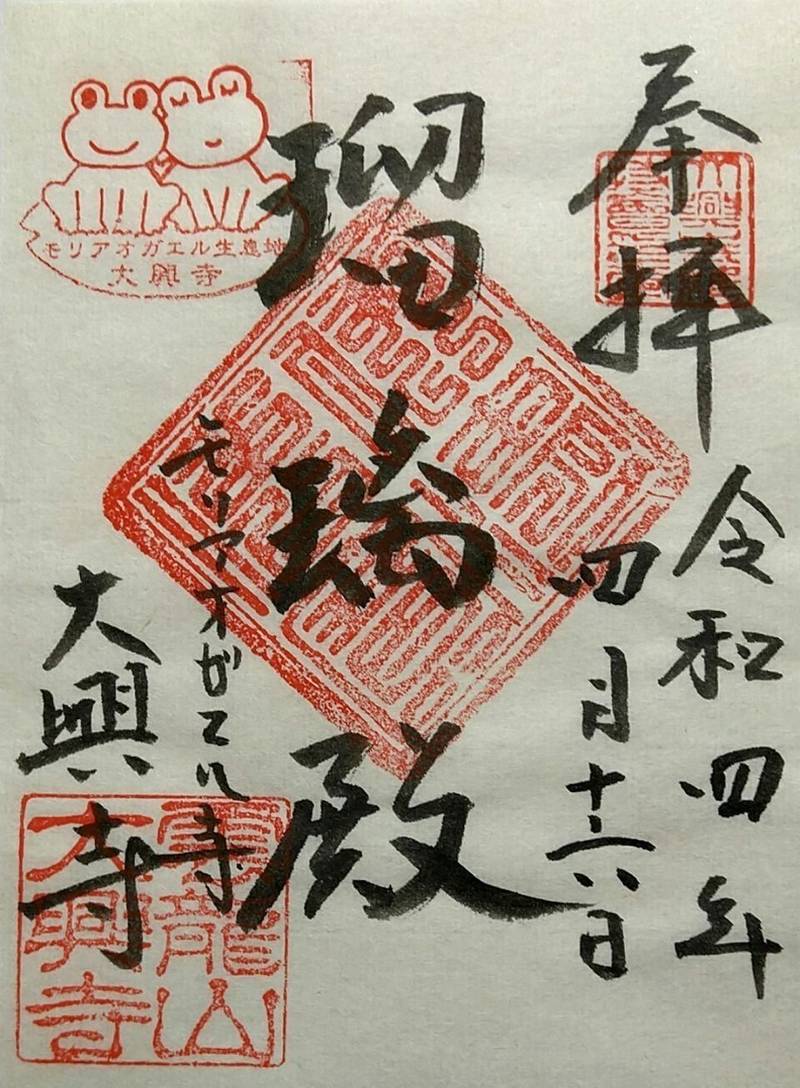 奉拝
令和四年
四月十六日
瑠璃殿
モリアオガエル寺
大興寺
モリアオガエル生息地
大興寺
雲龍山
大興寺